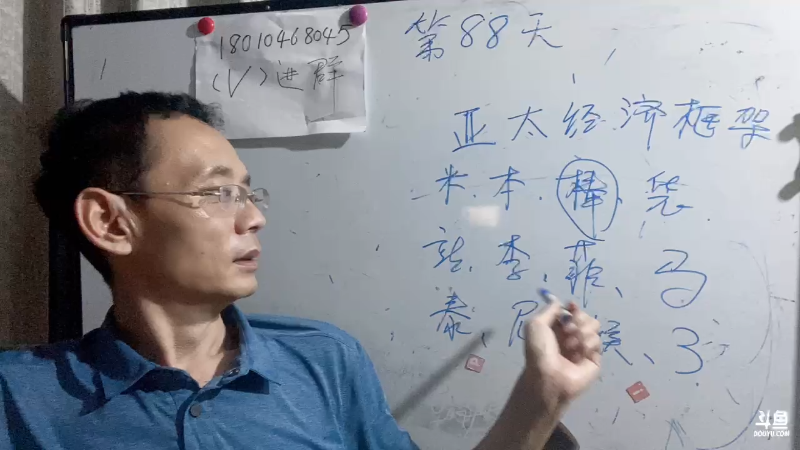 18010468045
(V)进群
第88天
亚太经济框架
米.本.棒.袋
李、菲、马
泰、
斗鱼
DOUYU.COM